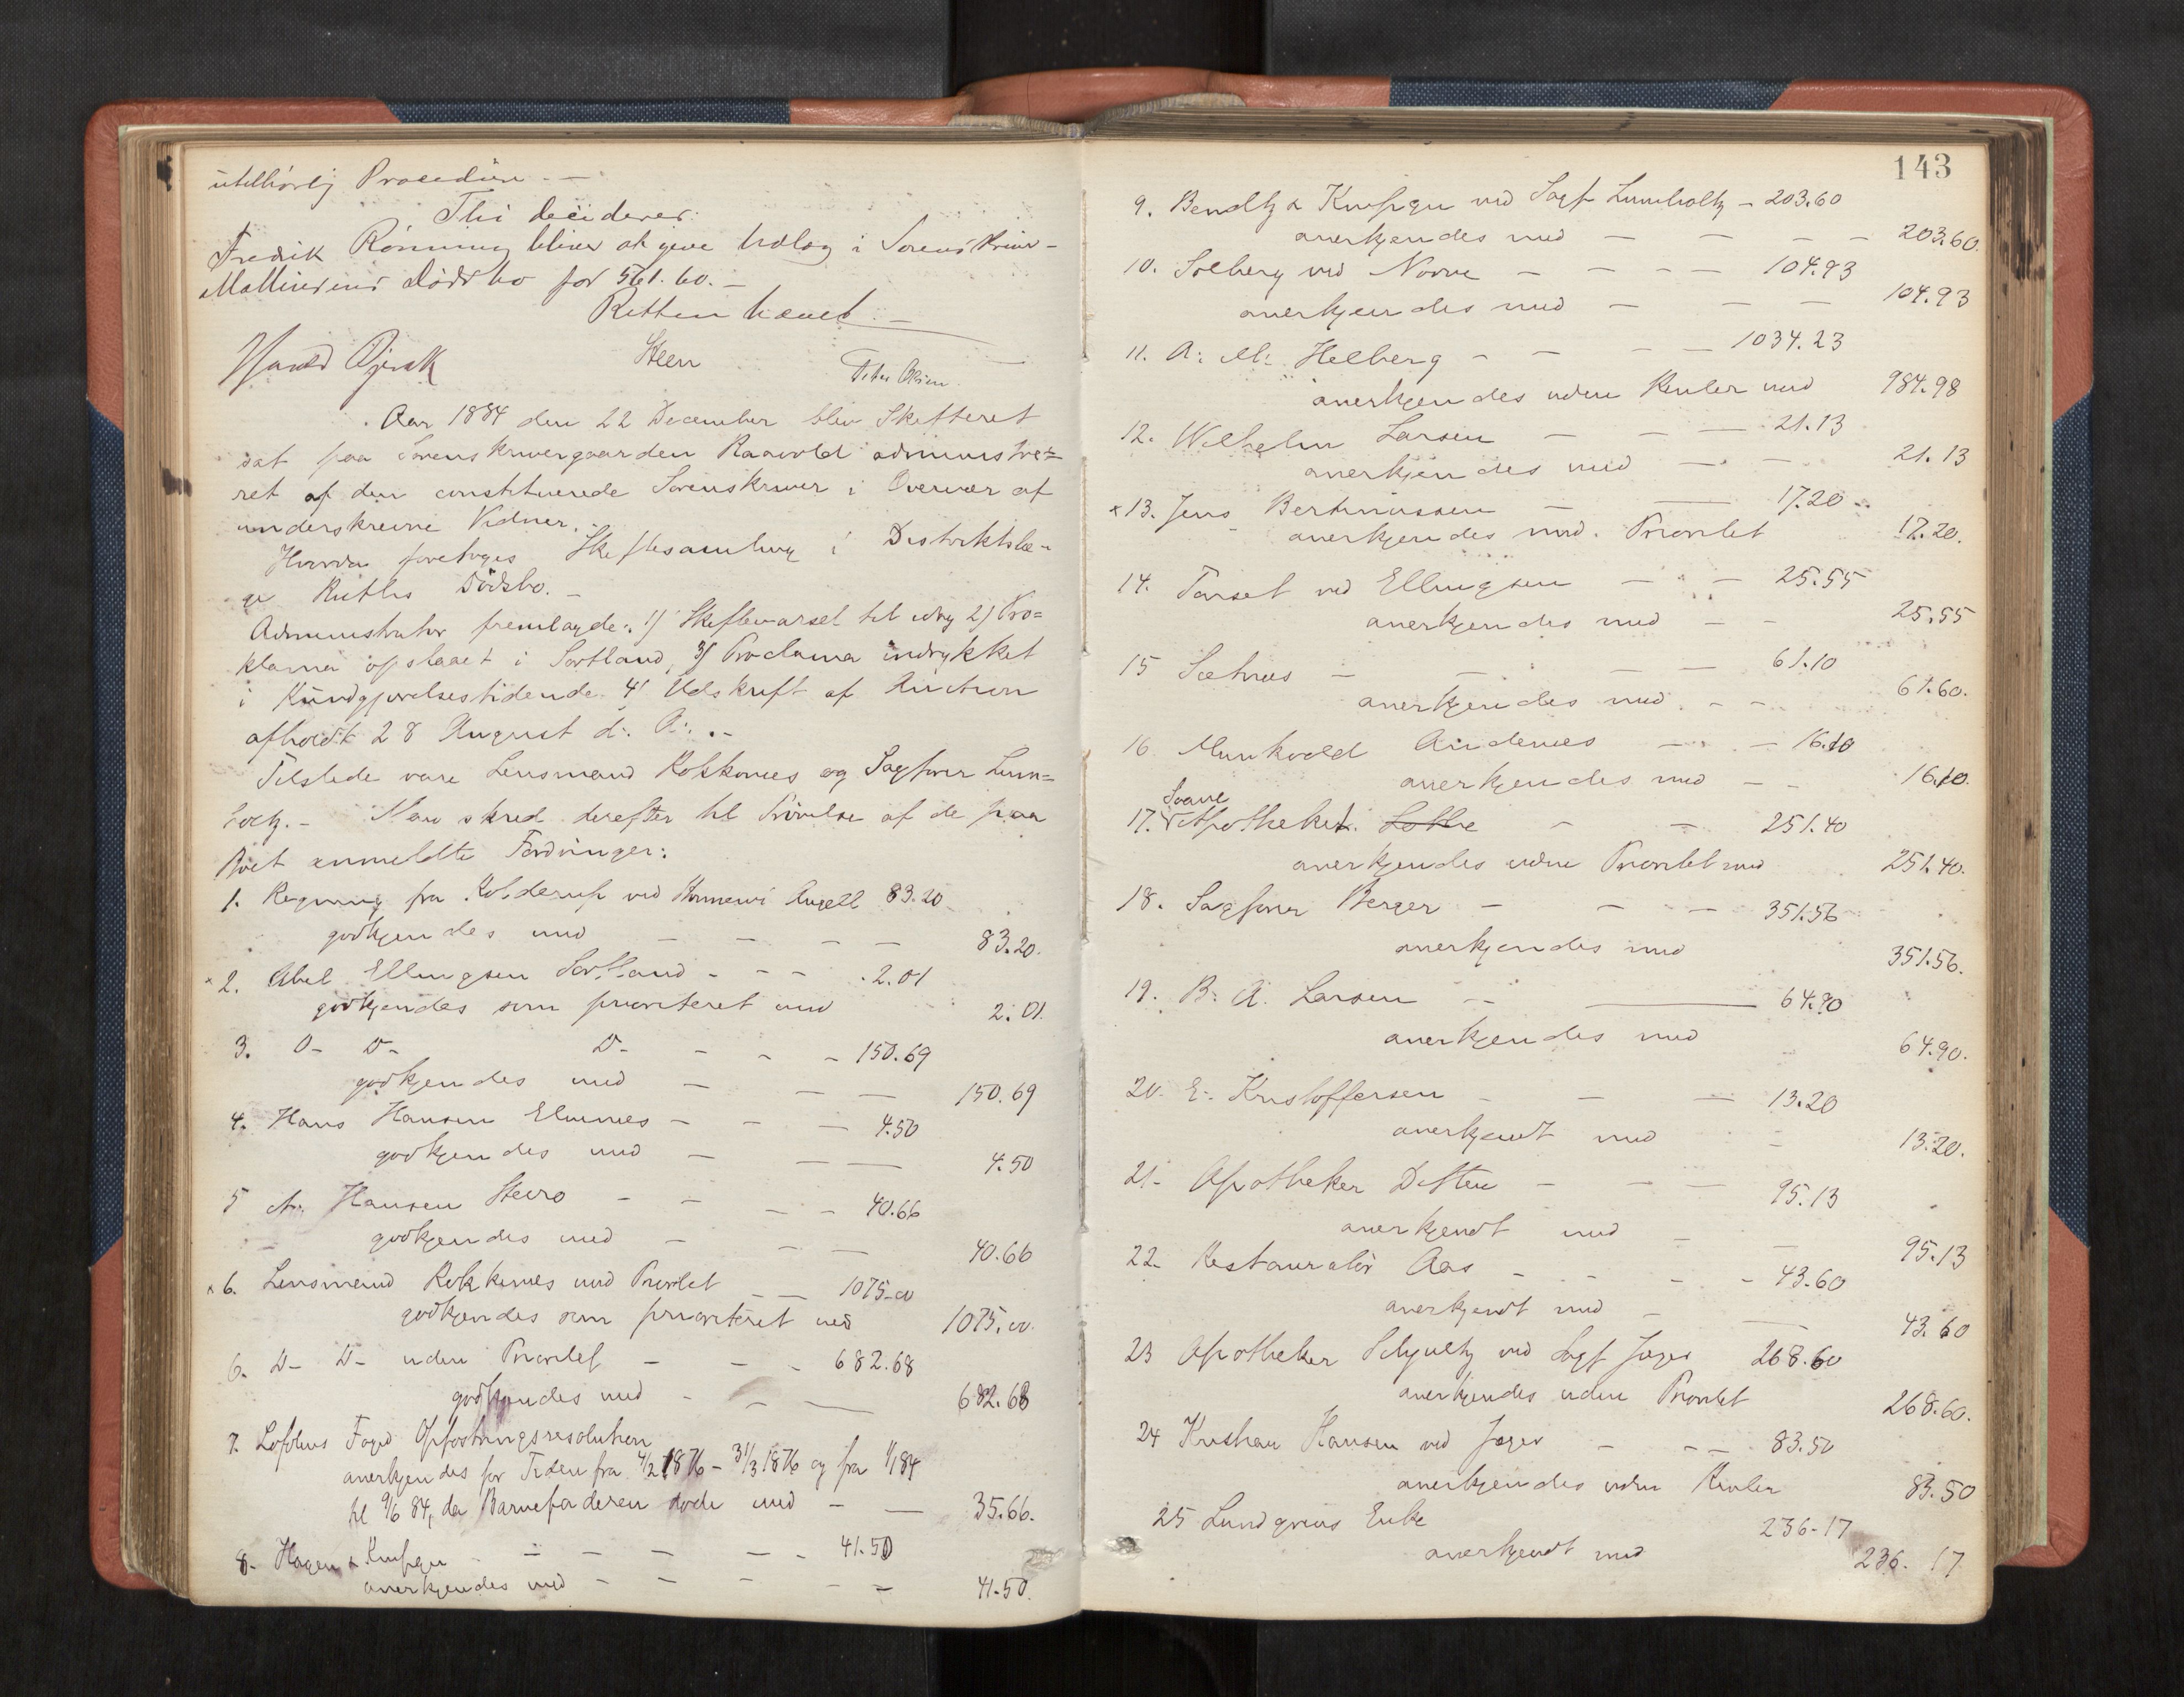 utilbørlig Procedure. —
Thi decideres:
Fredrik Rönning bliver at give Udlæg i Sorenskriver
Mallinsens Dödsbo for 561.60. —
Retten hævet. —
Harald
Steen
Peter Olsen
Aar 1884 den 22 December blev Skifteret
sat paa Sorenskrivergaarden Raavold administre=
ret af den constituerede Sorenskriver i Overvær af
underskrevne Vidner. —
Hvorda foretoges Skiftesamling i Distriktslæ=
ge Dödsbo. —
Administrator fremlagde: 1) Skiftevarsel til idag 2) Pro=
klama opslaaet i Sortland, 3) Proclama indrykket
i Kundgjørelsestidende 4) Udskrift af Auction
afholdt 28 August d: A: . —
Tilstede vare Lensmand Rokkones og Sagfører Lum=
holtz. — Man skred derefter til Prövelse af de paa
Boet anmeldte Fordringer:
1. Regning fra Kolderup ved Angell 83.20
godkjendes med — — — — 83.20.
× 2. Abel Ellingsen Sortland - - - 2.01
godkjendes som prioriteret med 2.01
3. D- D- D- - - - 150.69
godkjendes med — — — 150.69
4. Hans Hansen - - — 4.50
godkjendes med — — — 4.50
5 A. Hansen Steiro - - — - 40.66
godkjendes med — — — 40.66
× 6. Lensmand Rokkones med Prioritet — — 1075-00
godkjendes som prioriteret med 1075.00.
6. D- D- uden Prioritet — - - 682.68
godkjendes med - - — 682.68
7. Lofotens Foged Opfostringsresolution
anerkjendes for Tiden fra 4/2 1876 - 31/3 1876 og fra 1/1 84
til 9/6 84, da Barnefaderen döde med — — 35.66.
8. Hagen & Kompgn - — — — — - 41.50
anerkjendes med — — — — — 41.50.
143
9. Bendtz & Kompgn ved Sagf Lumholtz — 203.60
anerkjendes med — — — — 203.60.
10. Solberg ved Norve — — - — 104.93
anerkjendes med — — — 104.93
11. A: M: Helberg - — — — 1034.23
anerkjendes uden Renter med 984.98
12. Wilhelm Larsen — — — 21.13
anerkjendes med — — 21.13
× 13. Jens Bertinussen — — 17.20
anerkjendes med. Prioritet 17.20.
14. Tarset ved Ellingsen — - — 25.55
anerkjendes med — - 25.55
15 Sætnes — — — — 61.10
anerkjendes med - - 61.60.
16 Munkvold Andenes — - — 16.10
anerkjendes med — - 16.10.
Svane
17. Apotheket. Lothe - — 251.40
anerkjendes uden Prioritet med 251.40.
18. Sagfører Berger — - — 351.56
anerkjendes med 351.56.
19. B: A. Larsen — — 64.90
anerkjendes med 64.90.
20. E: Kristoffersen - — — 13.20
anerkjendt med - 13.20.
21- Apotheker Ditten — — — 95.13
anerkjendt med — — 95.13
22- Restauratör Aas — - - - 43.60
anerkjendt med — — 43.60
23 Apotheker Schjultz ved Sagf Jæger 268.60
anerkjendes uden Prioritet 268.60.
24 Kristian Hansen ved Jæger — - — 83.50
anerkjendes uden Renter 83.50
25 Lundgrens Enke 236-17
anerkjendt med 236. 17